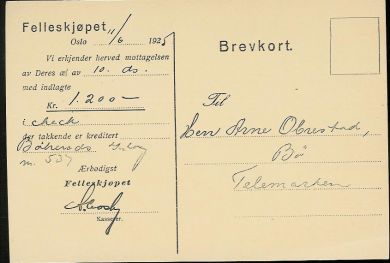 Felleskjøpet
Oslo 11/6 1925
Vi erkjender herved mottagelsen
av Deres æl av 10. ds.
med indlagte
Kr. 1.200 —
i check
der takkende er kreditert
Bøherads
m. 537
Ærbødigst
Felleskjøpet
Kasserer.
Brevkort.
Til
Herr Arne Obrestad,
Bø
Telemarken